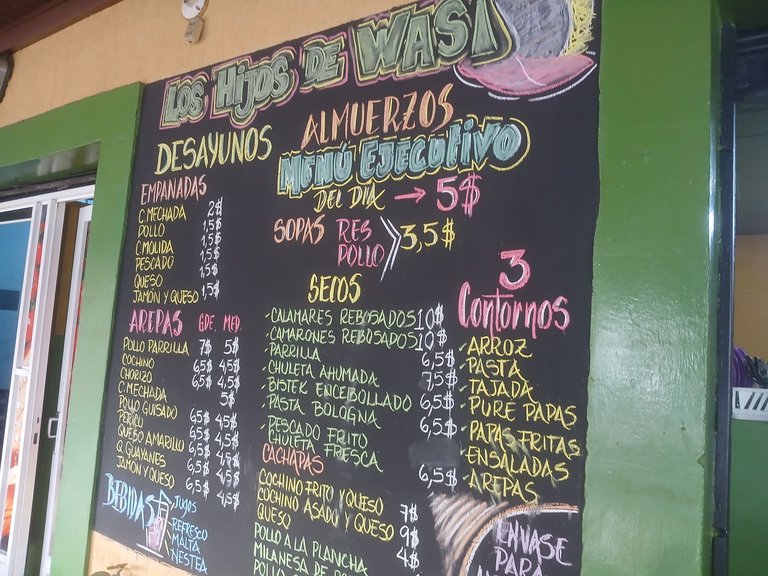 LOS HIJOS DE WASI
DESAYUNOS
EMPANADAS
C. MECHADA 2$
POLLO 1,5$
C. MOLIDA 1,5$
PESCADO 1,5$
QUESO 1,5$
JAMÓN Y QUESO 1,5$
AREPAS GDE. MED.
POLLO PARRILLA 7$ 5$
COCHINO 6,5$ 4,5$
CHORIZO 6,5$ 4,5$
C. MECHADA 5$
POLLO GUISADO 6,5$ 4,5$
PERICO 6,5$ 4,5$
QUESO AMARILLO 6,5$ 4,5$
Q. GUAYANES 6,5$ 4,5$
JAMÓN Y QUESO 6,5$ 4,5$
BEBIDAS
JUGOS
REFRESCO
MALTA
NESTEA
ALMUERZOS
MENÚ EJECUTIVO
DEL DIA → 5$
SOPAS RES
POLLO 3,5$
SECOS
CALAMARES REBOSADOS 10$
CAMARONES REBOSADOS 10$
PARRILLA 6,5$
CHULETA AHUMADA 7,5$
BISTEK ENCEIBOLLADO 6,5$
PASTA BOLOGNA 6,5$
PESCADO FRITO
CHULETA FRESCA 6,5$
CACHAPAS
COCHINO FRITO Y QUESO 7$
COCHINO ASADO Y QUESO 9$
QUESO 4$
POLLO A LA PLANCHA
MILANESA DE
POLLO
3
Contornos
ARROZ
PASTA
TAJADA
PURE PAPAS
PAPAS FRITAS
ENSALADAS
AREPAS
ENVASE
PARA